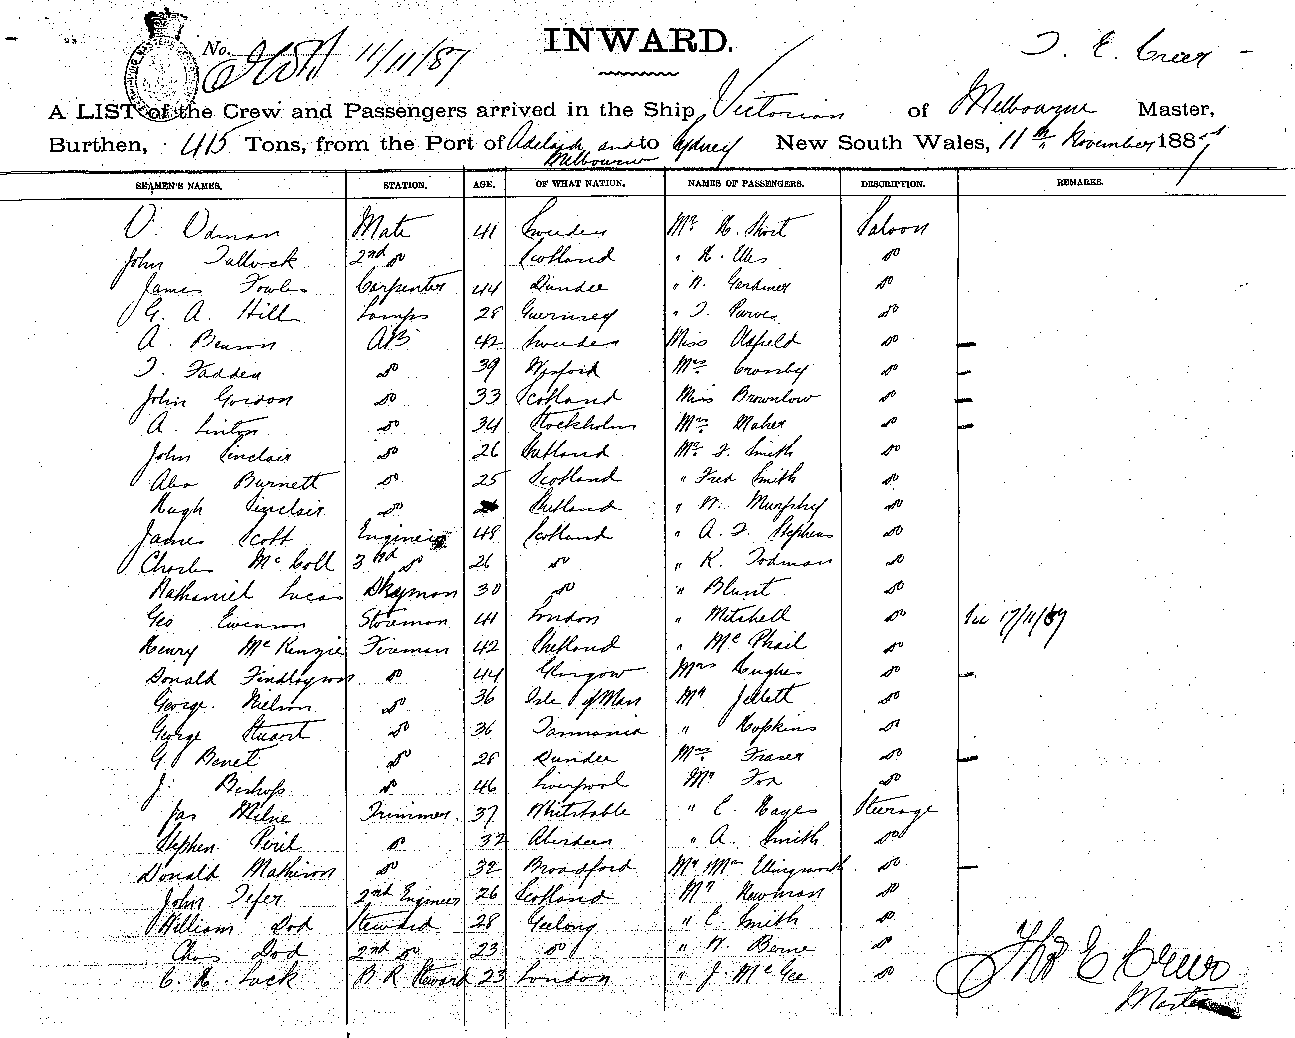 No. 11/11/87 INWARD. T. E. Creer
A LIST of the Crew and Passengers arrived in the Ship Victorian of Melbourne Master,
Burthen, 415 Tons, from the Port of Adelaide and Melbourne to Sydney New South Wales, 11th November 1887
SEAMEN'S NAMES. STATION. AGE. OF WHAT NATION. NAMES OF PASSENGERS. DESCRIPTION. REMARKS.
O. Odman Mate 41 Sweden Mr H. Short Saloon
John Tullock 2nd do Scotland " H. Ellis do
James Fowles Carpenter 44 Dundee " W. Gardiner do
G. A. Hill Lamps 28 Guernsey " T. Purves do
A. Benson AB 42 Sweden Miss Oldfield do —
T. Fadden do 39 Wexford Mrs Crosby do —
John Gordon do 33 Scotland Miss Brownlow do —
A. Linton do 34 Stockholm Mrs Maher do —
John Sinclair do 26 Shetland Mr F. Smith do
Alex Burnett do 25 Scotland " Fred Smith do
Hugh Sinclair do Shetland " W. Murphy do
James Scott Engineer 48 Scotland " A. F. Stephens do
Charles McColl 3rd do 26 do " R. Todman do
Nathaniel Lucas 30 do " Blunt do
Geo Evenson Storeman 41 London " Mitchell do 17/11/87
Henry McKenzie Fireman 42 Shetland " McPhail do
Donald Findlayson do 44 Glasgow Mrs Hughes do —
George Nielson do 36 Isle of Man Mr Jellett do
George Stuart do 36 Tasmania " Hopkins do
G. Benet do 28 Dundee Mrs Fraser do —
J. Bishop do 46 Liverpool Mr Fox do
Jas Milne Trimmer 37 Whitstable " C. Hayes Steerage
Stephen Peril do 32 Aberdeen " A. Smith do
Donald Matheson do 32 Broadford Mr Mrs Ellingworth do —
John Tefer 2nd Engineer 26 Scotland Mr Newman do
William Dod Steward 28 Geelong " E. Smith do
Chas Dod 2nd do 23 do " W. Berne do
C. H. Lock B R Steward 23 London " J. McGee do
Tho E Creer
Master